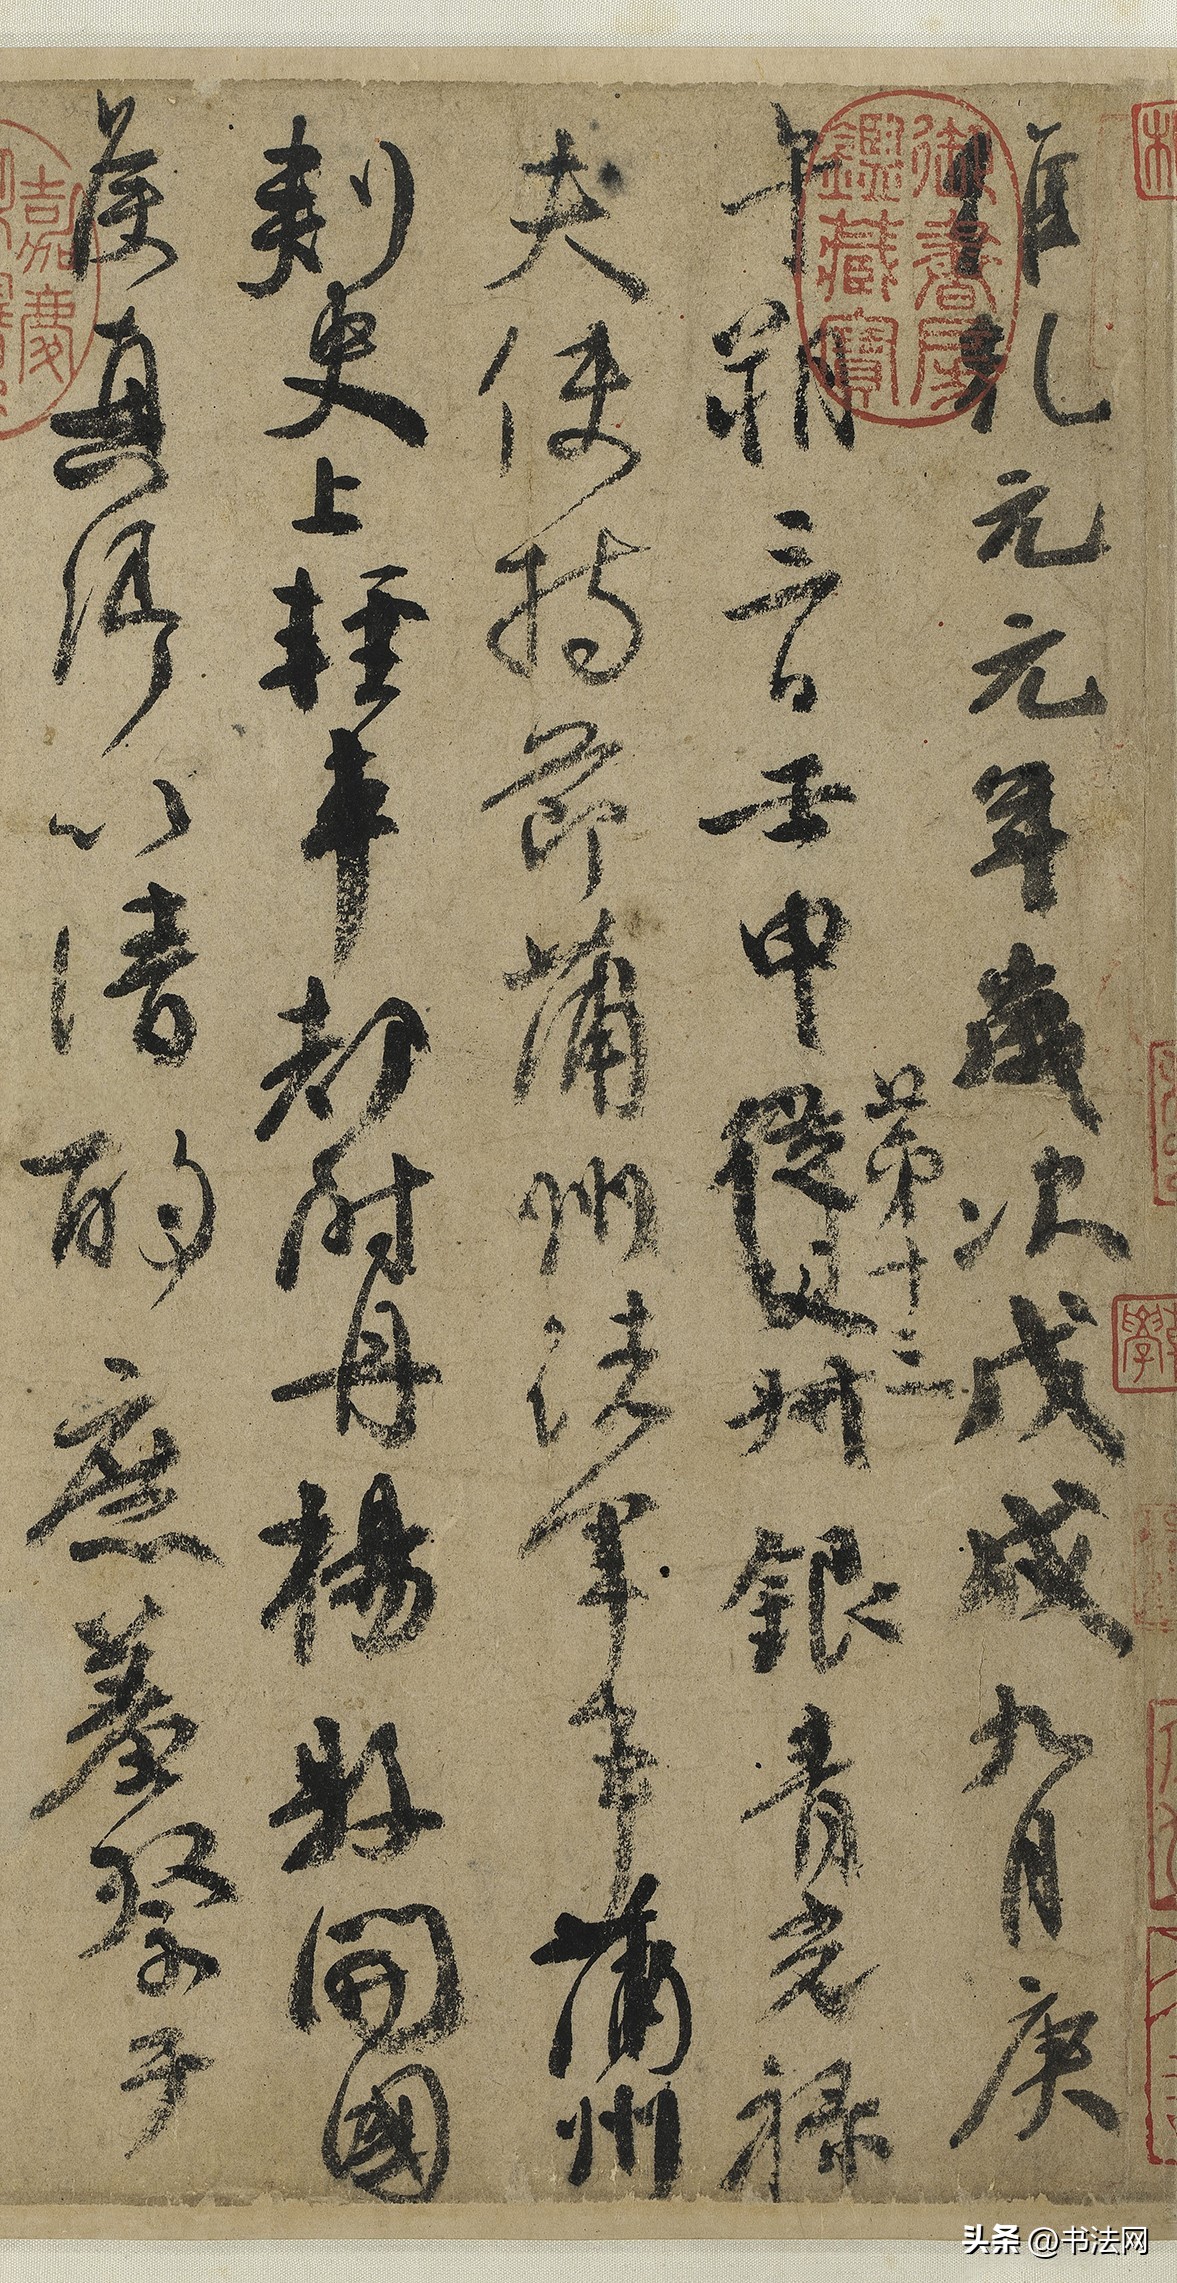 維乾元元年歲次戊戌九月庚
午朔三日壬申第十三從父叔銀青光祿
夫使持節蒲州諸軍事蒲州
刺史上輕車都尉丹楊縣開國
侯真卿以清酌庶羞祭于
御書房鑑藏寶
嘉慶
头条 @书法网